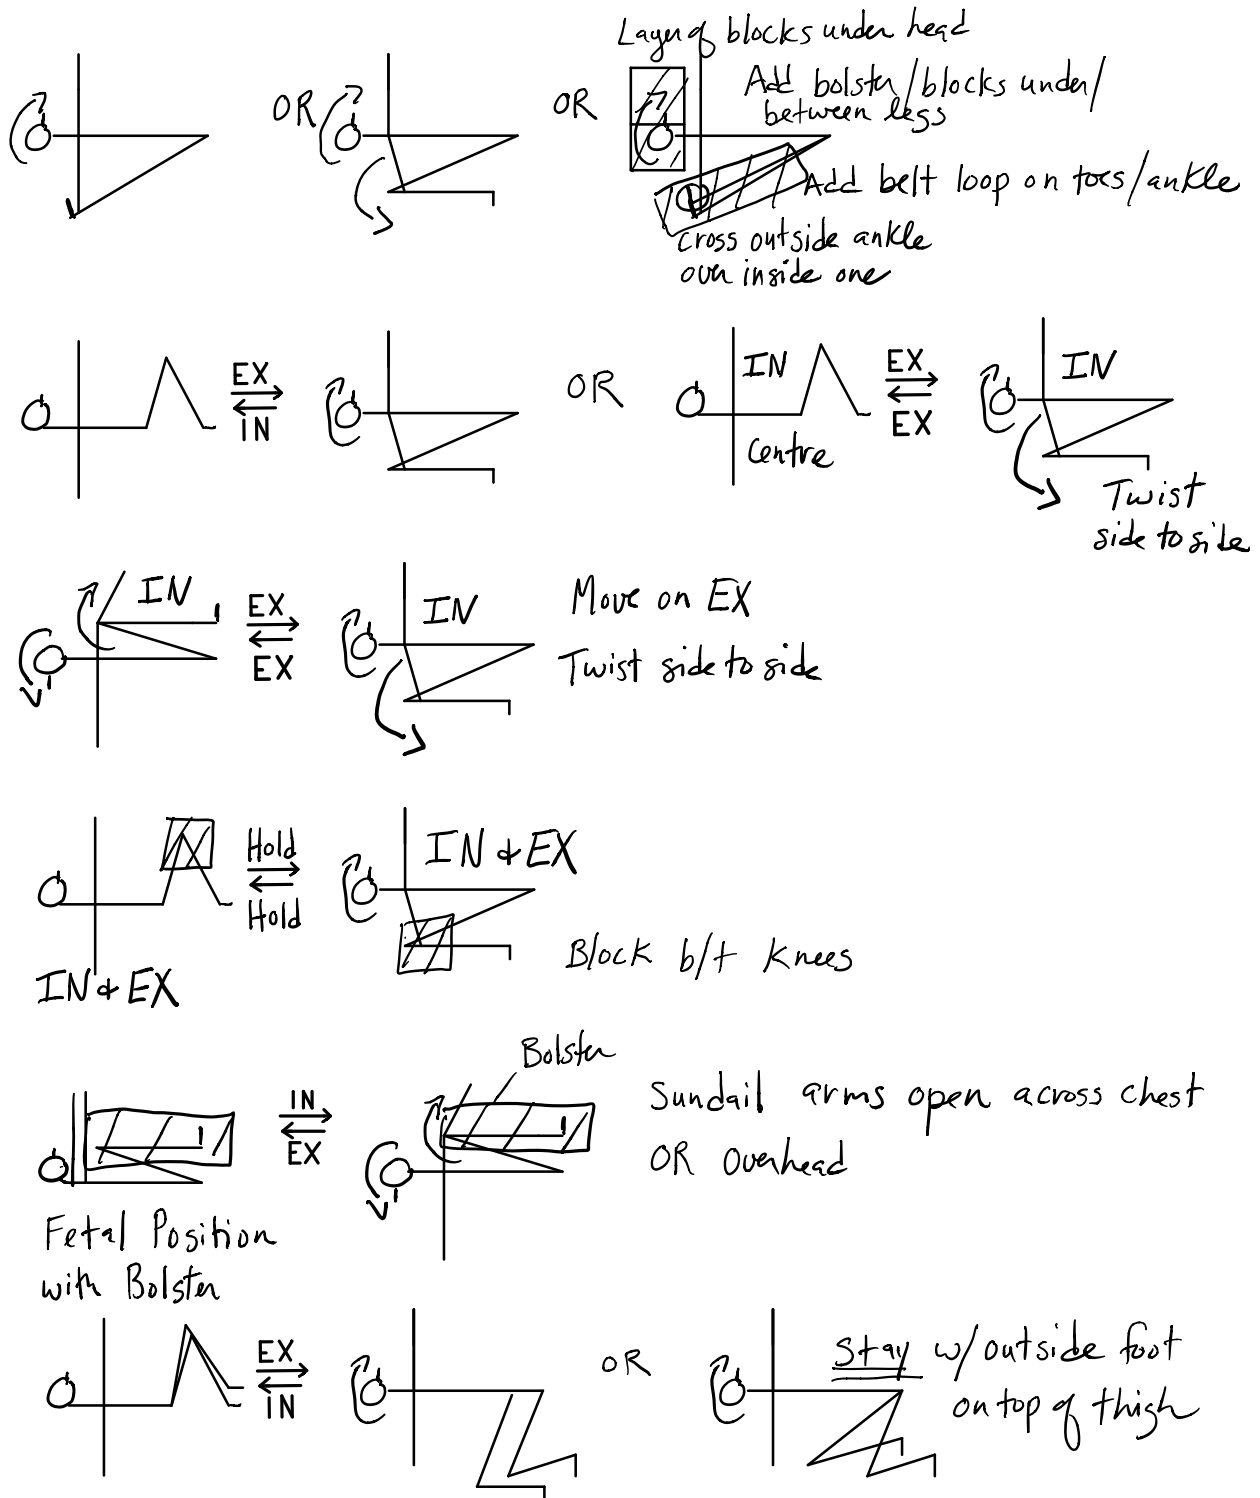 Layer of blocks under head
OR
OR
Add bolster/blocks under/
between legs
Add belt loop on toes/ankle
cross outside ankle
over inside one
EX
IN
OR
IN
Centre
EX
EX
IN
Twist
side to side
IN
EX
EX
IN
Move on EX
Twist side to side
Hold
Hold
IN & EX
IN & EX
Block b/t knees
Bolster
IN
EX
Sundail arms open across chest
OR Overhead
Fetal Position
with Bolster
EX
IN
OR
Stay w/outside foot
on top of thigh